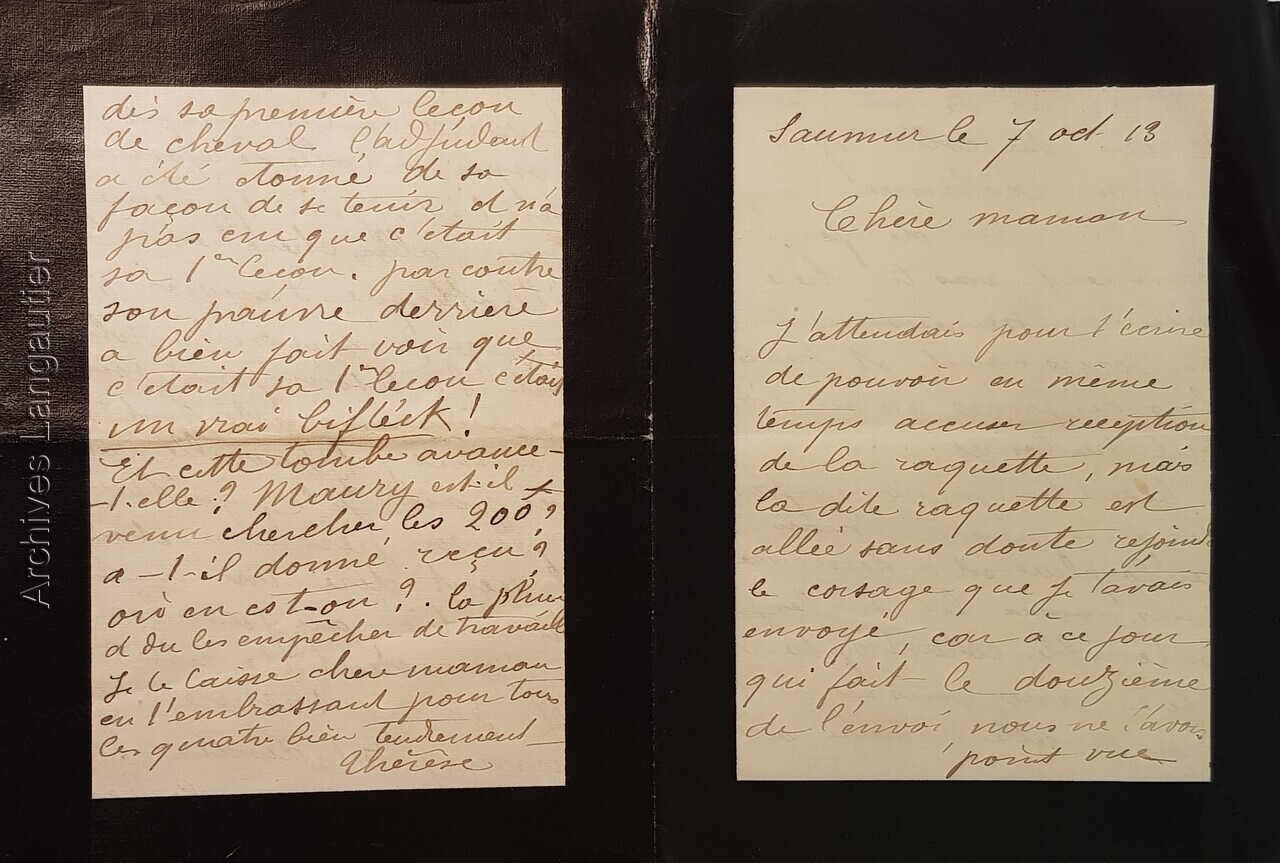 Saumur le 7 oct. 13
Chère maman
J'attendais pour t'écrire
de pouvoir en même
temps accuser reception
de la raquette, mais
la dite raquette est
allée sans doute rejoindre
le corsage que je t'avais
envoyé, car à ce jour
qui fait le douzième
de l'envoi nous ne l'avons
point vue
dès sa première leçon
de cheval l'adjudant
a été étonné de sa
façon de se tenir et n'a
pas cru que c'était
sa 1re leçon. par contre
son pauvre derrière
a bien fait voir que
c'était sa 1re leçon c'était
un vrai bifteck!
Et cette tombe avance-
-t-elle? Maury est-il
venu chercher les 200?
a-t-il donné reçu?
où en est-on?. la pluie
a du les empêcher de travailler
Je te laisse chère maman
en t'embrassant pour tous
les quatre bien tendrement
Thérèse
Archives Langautier